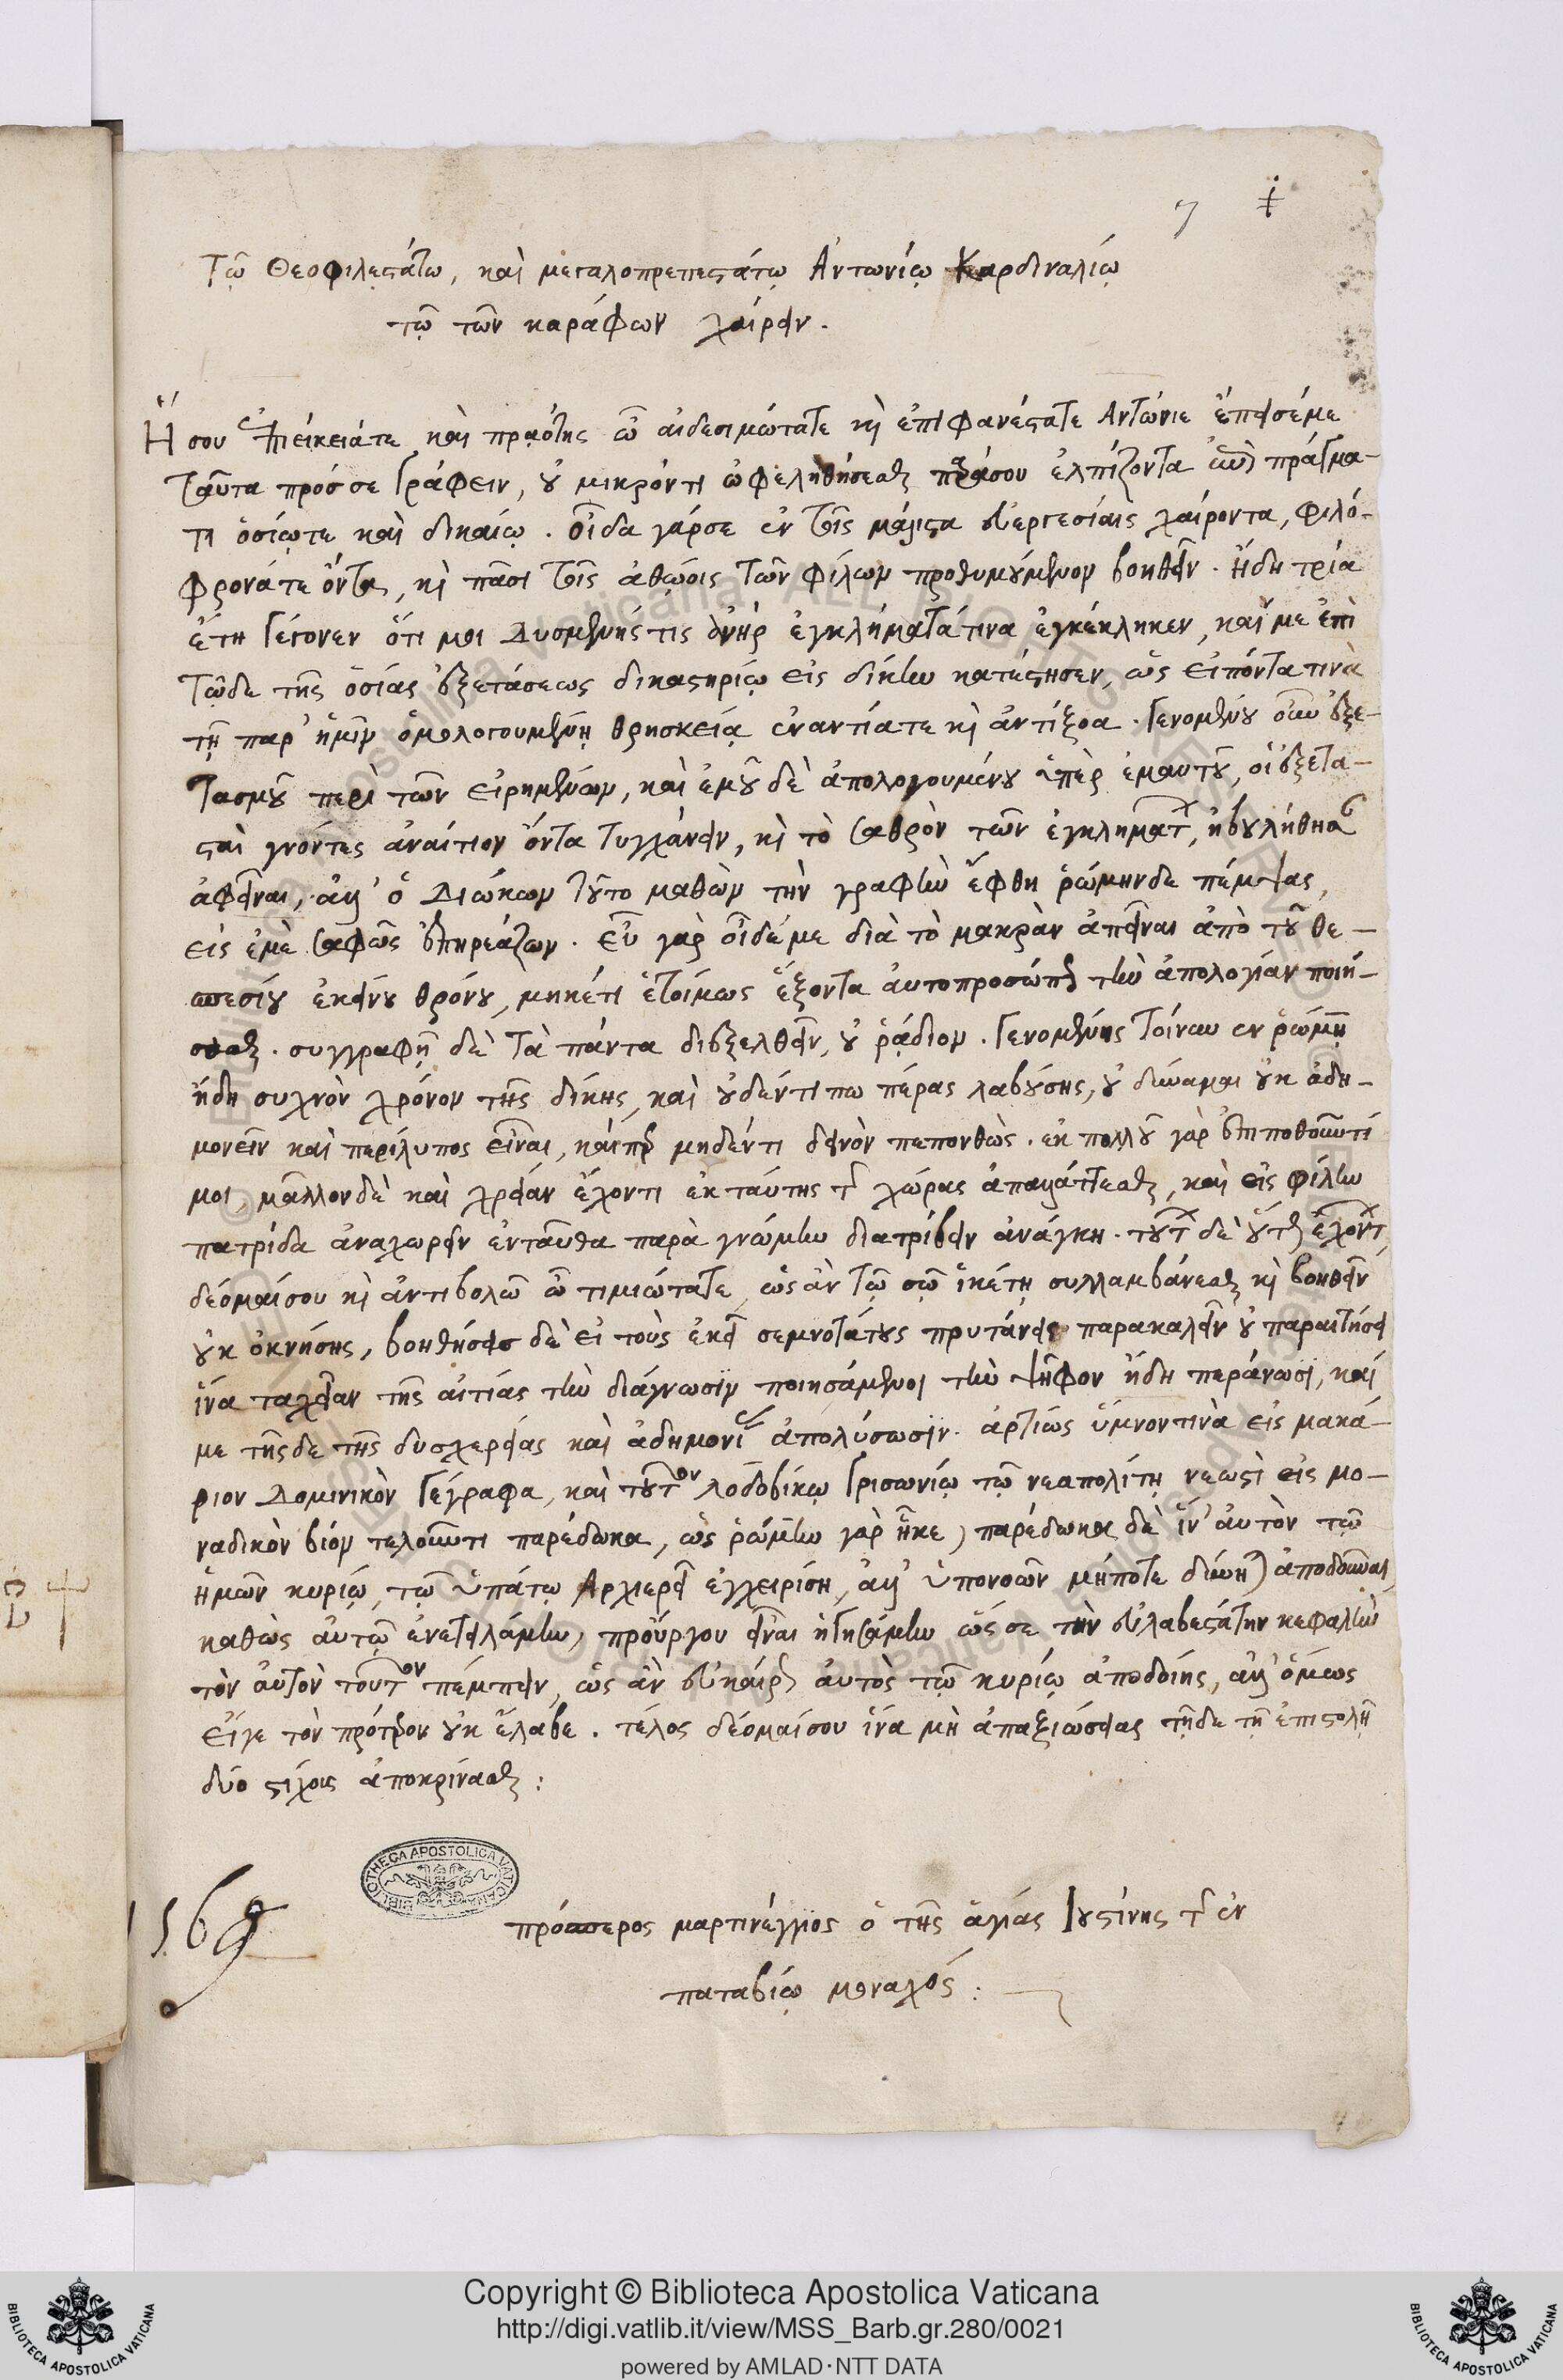 7 ‡
Τῷ Θεοφιλεστάτῳ, καὶ μεγαλοπρεπεστάτῳ Ἀντωνίῳ Καρδιναλίῳ
τῷ τῶν καράφων χαίρειν.
Ἥ σου ἐπιείκειάτε καὶ πραότης ὦ αἰδεσιμώτατε κὶ ἐπιφανέστατε Ἀντώνιε ἔπεισέμε
ταῦτα πρόσσε γράφειν, οὐ μικρόντι ὠφεληθήσεσθαι παράσου ἐλπίζοντα ἐν πράγμα-
τι ὁσίῳτε καὶ δικαίῳ. οἶδα γάρσε ἐν ταῖς μάλιστα εὐεργεσίαις χαίροντα, φιλό-
φρονάτε ὄντα, κὶ πᾶσι τοῖς ἀθῴοις τῶν φίλων προθυμούμενον βοηθεῖν. Ἤδη τρία
ἔτη γέγονεν ὅτι μοι Δυσμενής τις ἀνὴρ ἐγκλήματάτινα ἐγκέκληκεν, καί με ἐπὶ
τῷδε τῆς ὁσίας ἐξετάσεως δικαστηρίῳ εἰς δίκην κατέστησεν, ὡς εἰπόντα τινὰ
τῇ παρ' ἡμῖν ὁμολογουμένῃ θρησκείᾳ ἐναντίατε κὶ ἀντίξοα. Γενομένου οὖν ἐξε-
τασμοῦ περὶ τῶν εἰρημένων, καὶ ἐμοῦ δὲ ἀπολογουμένου ὑπὲρ ἐμαυτοῦ, οἱ ἐξετα-
σταὶ γνόντες ἀναίτιον ὄντα τυγχάνειν, κὶ τὸ σαθρὸν τῶν ἐγκλημάτ, ἠβουλήθησα
ἀφεῖναι, ἀλλ' ὁ Διώκων τοῦτο μαθὼν τὴν γραφὴν ἔφθη ῥώμηνδε πέμψας,
εἰς ἐμὲ σαφῶς ἐπηρεάζων. Εὖ γὰρ οἶδέ με διὰ τὸ μακρὰν ἀπεῖναι ἀπὸ τοῦ θε-
σπεσίου ἐκείνου θρόνου, μηκέτι ἑτοίμως ἕξοντα αὐτοπροσώπως τὴν ἀπολογίαν ποιή-
σασθαι. συγγραφῇ δὲ τὰ πάντα διεξελθεῖν, οὐ ῥᾴδιον. Γενομένης τοίνυν ἐν ῥώμῃ
ἤδη συχνὸν χρόνον τῆς δίκης, καὶ οὐδέντι πω πέρας λαβούσης, οὐ δύναμαι οὐκ ἀδη-
μονεῖν καὶ περίλυπος εἶναι, καίπερ μηδέντι δεινὸν πεπονθὼς. ἐκ πολλοῦ γὰρ ἐπιποθοῦντί
μοι, μᾶλλονδὲ καὶ χρείαν ἔχοντι ἐκ ταύτης τῆς χώρας ἀπαλλάττεσθαι, καὶ εἰς φίλην
πατρίδα ἀναχωρεῖν ἐνταῦθα παρὰ γνώμην διατρίβειν ἀνάγκη. τούτ δὲ οὕτως ἐχόντ,
δέομαίσου κὶ ἀντιβολῶ ὦ τιμιώτατε, ὡς ἂν τῷ σῷ ἱκέτῃ συλλαμβάνεσθαι κὶ βοηθεῖν
οὐκ ὀκνήσῃς, βοηθήσεις δὲ εἰ τοὺς ἐκεῖ σεμνοτάτους πρυτάνεις παρακαλεῖν οὐ παραιτήσῃ
ἵνα ταχεῖαν τῆς αἰτίας τὴν διάγνωσιν ποιησάμενοι τὴν ψῆφον ἤδη περάνωσι, καί
με τῆςδε τῆς δυσχερείας καὶ ἀδημονί ἀπολύσωσιν. ἀρτίως ὕμνοντινὰ εἰς μακά-
ριον Δομινικὸν γέγραφα, καὶ τοῦτον λοδοβίκῳ Γρισωνίῳ τῷ νεαπολίτῃ νεωστὶ εἰς μο-
ναδικὸν βίον τελοῦντι παρέδωκα, ὡς ῥώμην γὰρ ἧκε, παρέδωκα δὲ ἵν' αὐτὸν τῷ
ἡμῶν κυρίῳ, τῷ ὑπάτῳ Ἀρχιερεῖ ἐγχειρίσῃ, ἀλλ' ὑπονοῶν μήποτε δύνηται ἀποδοῦναι,
καθὼς αὐτῷ ἐνετειλάμην, προὔργου εἶναι ἡγησάμην ὥς σε τὴν εὐλαβεστάτην κεφαλὴν
τὸν αὐτὸν τοῦτον πέμπειν, ὡς ἂν εὐκαίρως αὐτὸς τῷ κυρίῳ ἀποδοίης, ἀλλ' ὅμως
εἴγε τὸν πρότερον οὐκ ἔλαβε. τέλος δέομαίσου ἵνα μὴ ἀπαξιώσειας τῇδε τῇ ἐπιστολῇ
δύο στίχοις ἀποκρίνασθαι:
1569
πρόσπερος μαρτινέγγιος ὁ τῆς ἁγίας Ἰουστίνης τῆς ἐν
παταβίῳ μοναχός:
BIBLIOTHECA APOSTOLICA VATICANA
Copyright © Biblioteca Apostolica Vaticana
http://digi.vatlib.it/view/MSS_Barb.gr.280/0021
powered by AMLAD·NTT DATA
BIBLIOTECA APOSTOLICA VATICANA
BIBLIOTECA APOSTOLICA VATICANA